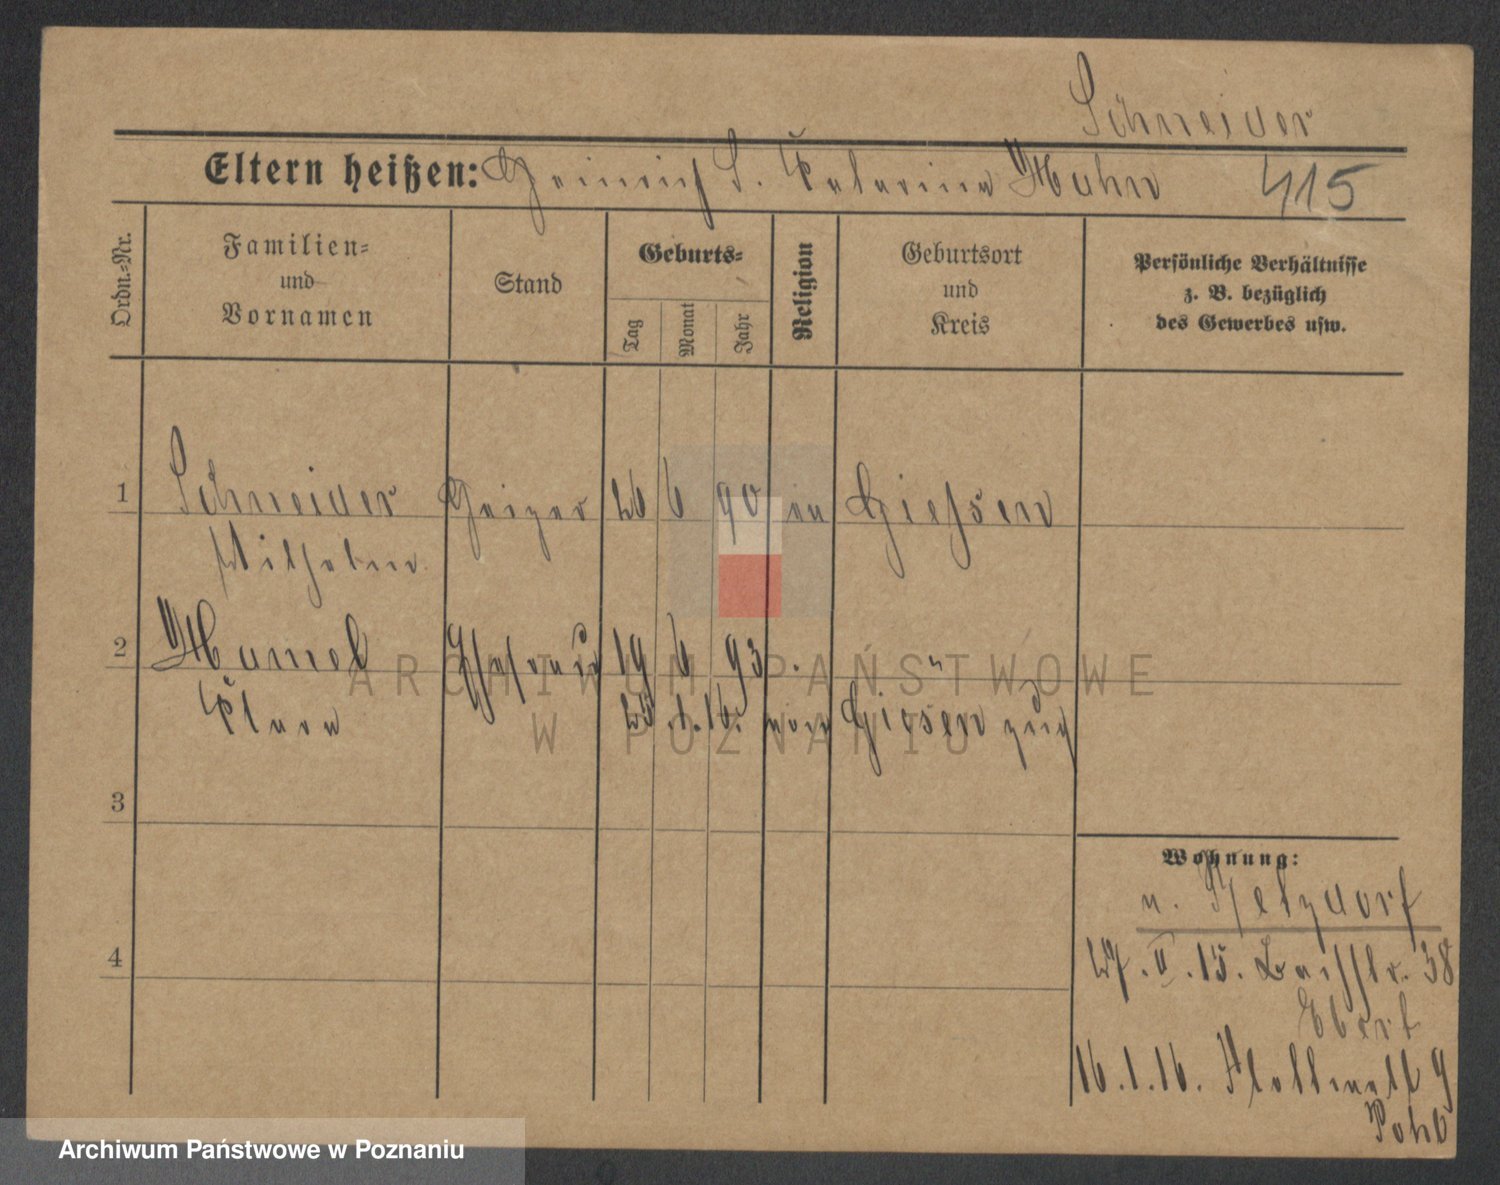 Schneider
Eltern heißen: Heinrich S. Katarina Hahn 415
Ordn.=Nr.
Familien=
und
Vornamen
Stand
Geburts=
Tag
Monat
Jahr
Religion
Geburtsort
und
Kreis
Persönliche Verhältnisse
z. B. bezüglich
des Gewerbes usw.
1 Schneider Heizer 26 6 90 ev Gießen
Wilhelm
2 Hamel Ehefrau 19 6 93
Klara 25.1.16. von Giesen zug
3
4
Wohnung:
n. Retzdorf
27.II.15. 38
Ebert
16.1.16. Flottwell 9
Pohl
ARCHIWUM PAŃSTWOWE
W POZNANIU
Archiwum Państwowe w Poznaniu